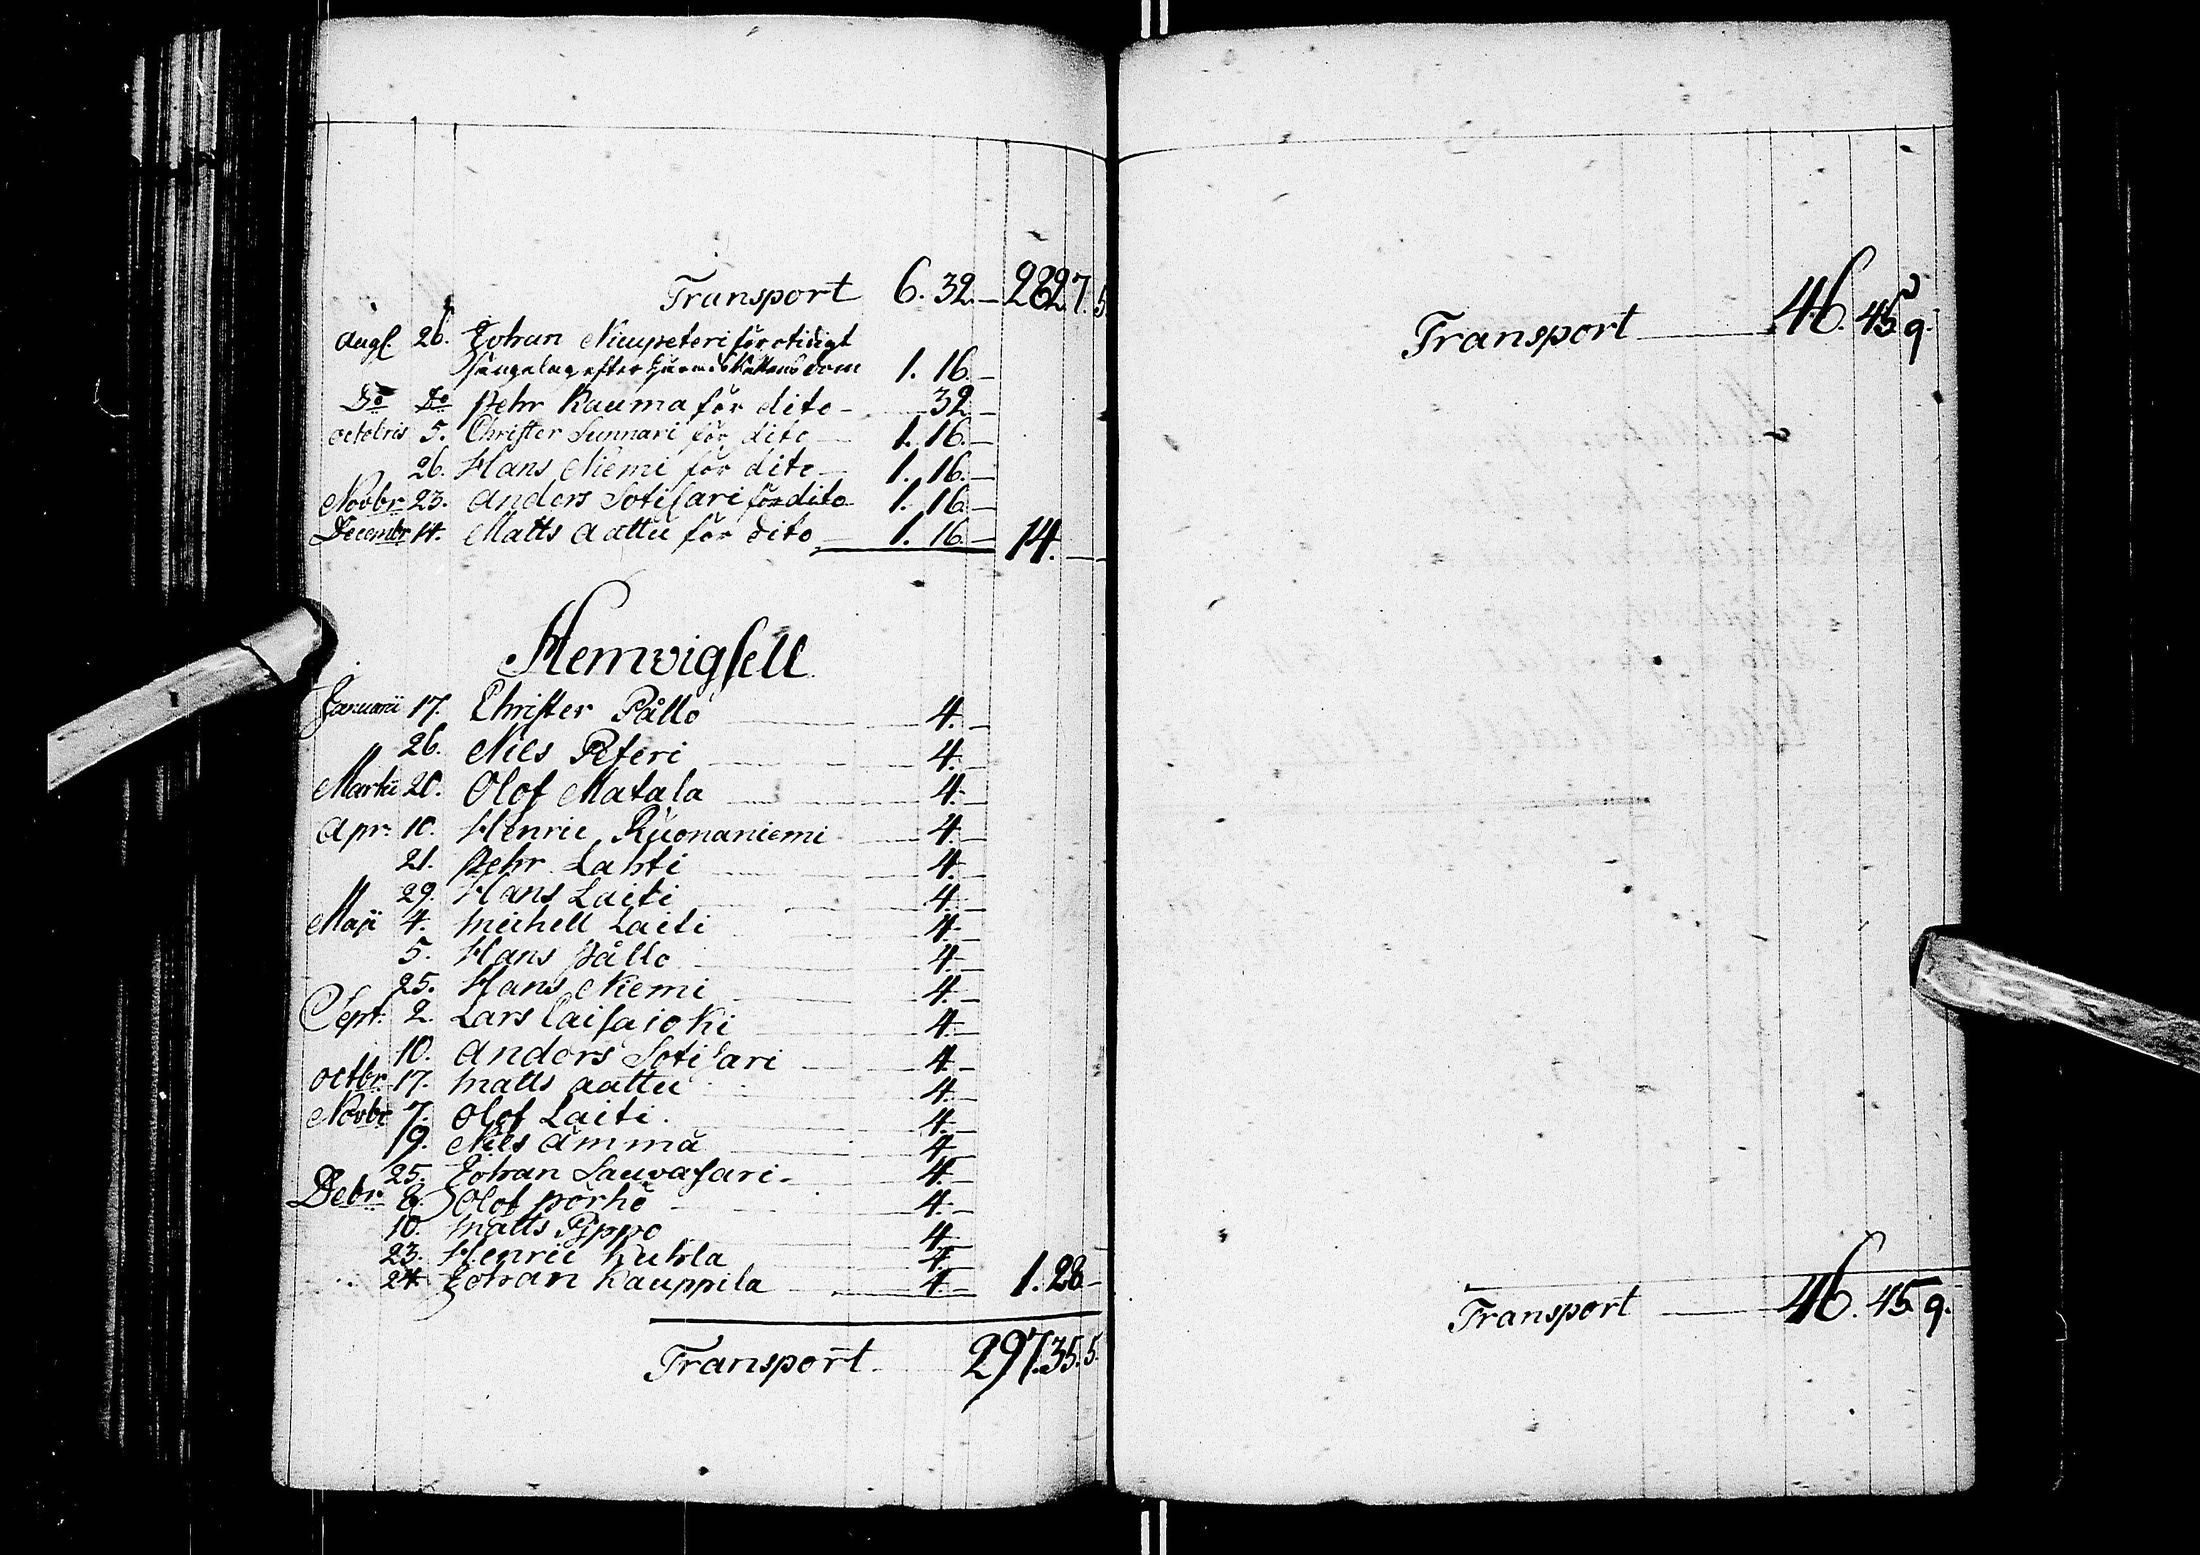 Transport 6. 32. — 282. 7. 5.
Augl 26. Johan Niupeteri för otidigt
sängelag efter Häradsrättens dom 1. 16. —
Do Do Pehr Rauma för dito — 32 —
Octobris 5. Christer Sunnari för dito — 1. 16. —
26. Hans Niemi för dito — 1. 16. —
Novbr 23. Anders Sotisari för dito 1. 16. —
Decembr 14. Matts Aattu för dito — 1. 16. — 14. —
Hemvigsell
Januarii 17. Christer Pållo 4. —
26. Nils Peteri 4. —
Martii 20. Olof Matala 4. —
Apr: 10. Henric Ruonaniemi 4. —
21. Pehr Lahti 4. —
29. Hans Laiti 4. —
Maji 4. Michell Laiti 4. —
5. Hans Pållo 4. —
25. Hans Niemi 4. —
Sept: 2. Lars Caisajoki 4. —
10. Anders Sotisari 4. —
Octbr. 17. Matts Aattu 4. —
Novbr 7. Olof Laiti. 4. —
19. Nils Ämmä 4. —
25. Johan Lauvasari — 4. —
Debr 8. Olof Pörhö 4. —
10. Matts Pippo 4. —
23. Henric Kuhla 4. —
24. Johan Kauppila 4. — 1. 28 —
Transport 297. 35. 5.
Transport 46. 45. 9.
Transport 46. 45. 9.